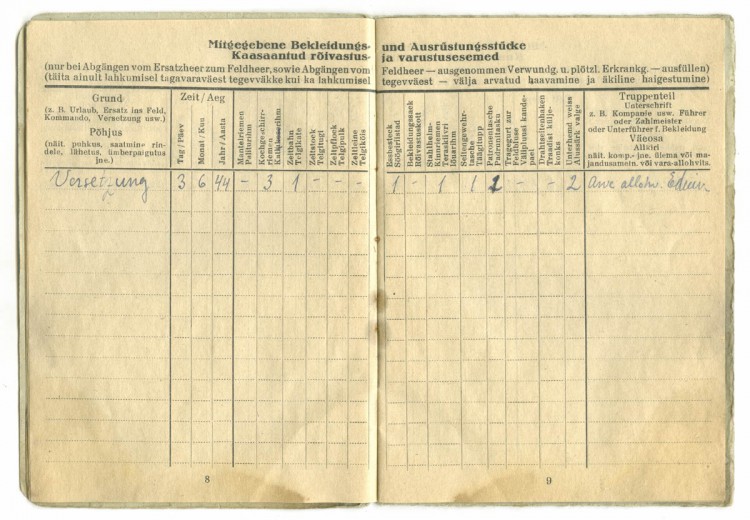 Mitgegebene Bekleidungs- und Ausrüstungsstücke
Kaasaantud rõivastus- ja varustusesemed
(nur bei Abgängen vom Ersatzheer zum Feldheer, sowie Abgängen vom Feldheer — ausgenommen Verwundg. u. plötzl. Erkrankg. — ausfüllen)
(täita ainult lahkumisel tagavaraväest tegevväkke kui ka lahkumisel tegevväest — välja arvatud haavamine ja äkiline haigestumine)
Grund
(z. B. Urlaub, Ersatz ins Feld,
Kommando, Versetzung usw.)
Põhjus
(näit. puhkus, saatmine rin-
dele, lähetus, ümberpaigutus
jne.)
Zeit / Aeg
Tag / Päev
Monat / Kuu
Jahr / Aasta
Mantelriemen
Palirihma
Kochgeschirr-
riemen
Zeltbahn
Telgikate
Zeltstock
Telgitugi
Zeltpflock
Telgipulk
Zeltleine
Telgiköis
Essbesteck
Söögiriistad
Bekleidungssack
Rõivastuskott
Stahlhelm-
Kinnriemen
Teraskiivri
lõuarihm
Seitengewehr-
tasche
Tääqitupp
Patronentasche
Padrunitasku
Tragegurt zur
Feldbluse
Välipluusi kande-
pael
Drahtseitenhaken
Traadist külje-
konks
Unterhemd weiss
Alussärk valge
Truppenteil
Unterschrift
z. B. Kompanie usw. Führer
oder Zahlmeister
oder Unterführer f. Bekleidung
Väeosa
Allkiri
näit. komp.- jne. ülema või ma-
jandusameln. või vara-allohvits.
Versetzung 3 6 44 - 3 1 - - - 1 - 1 1 2 - - 2
8
9